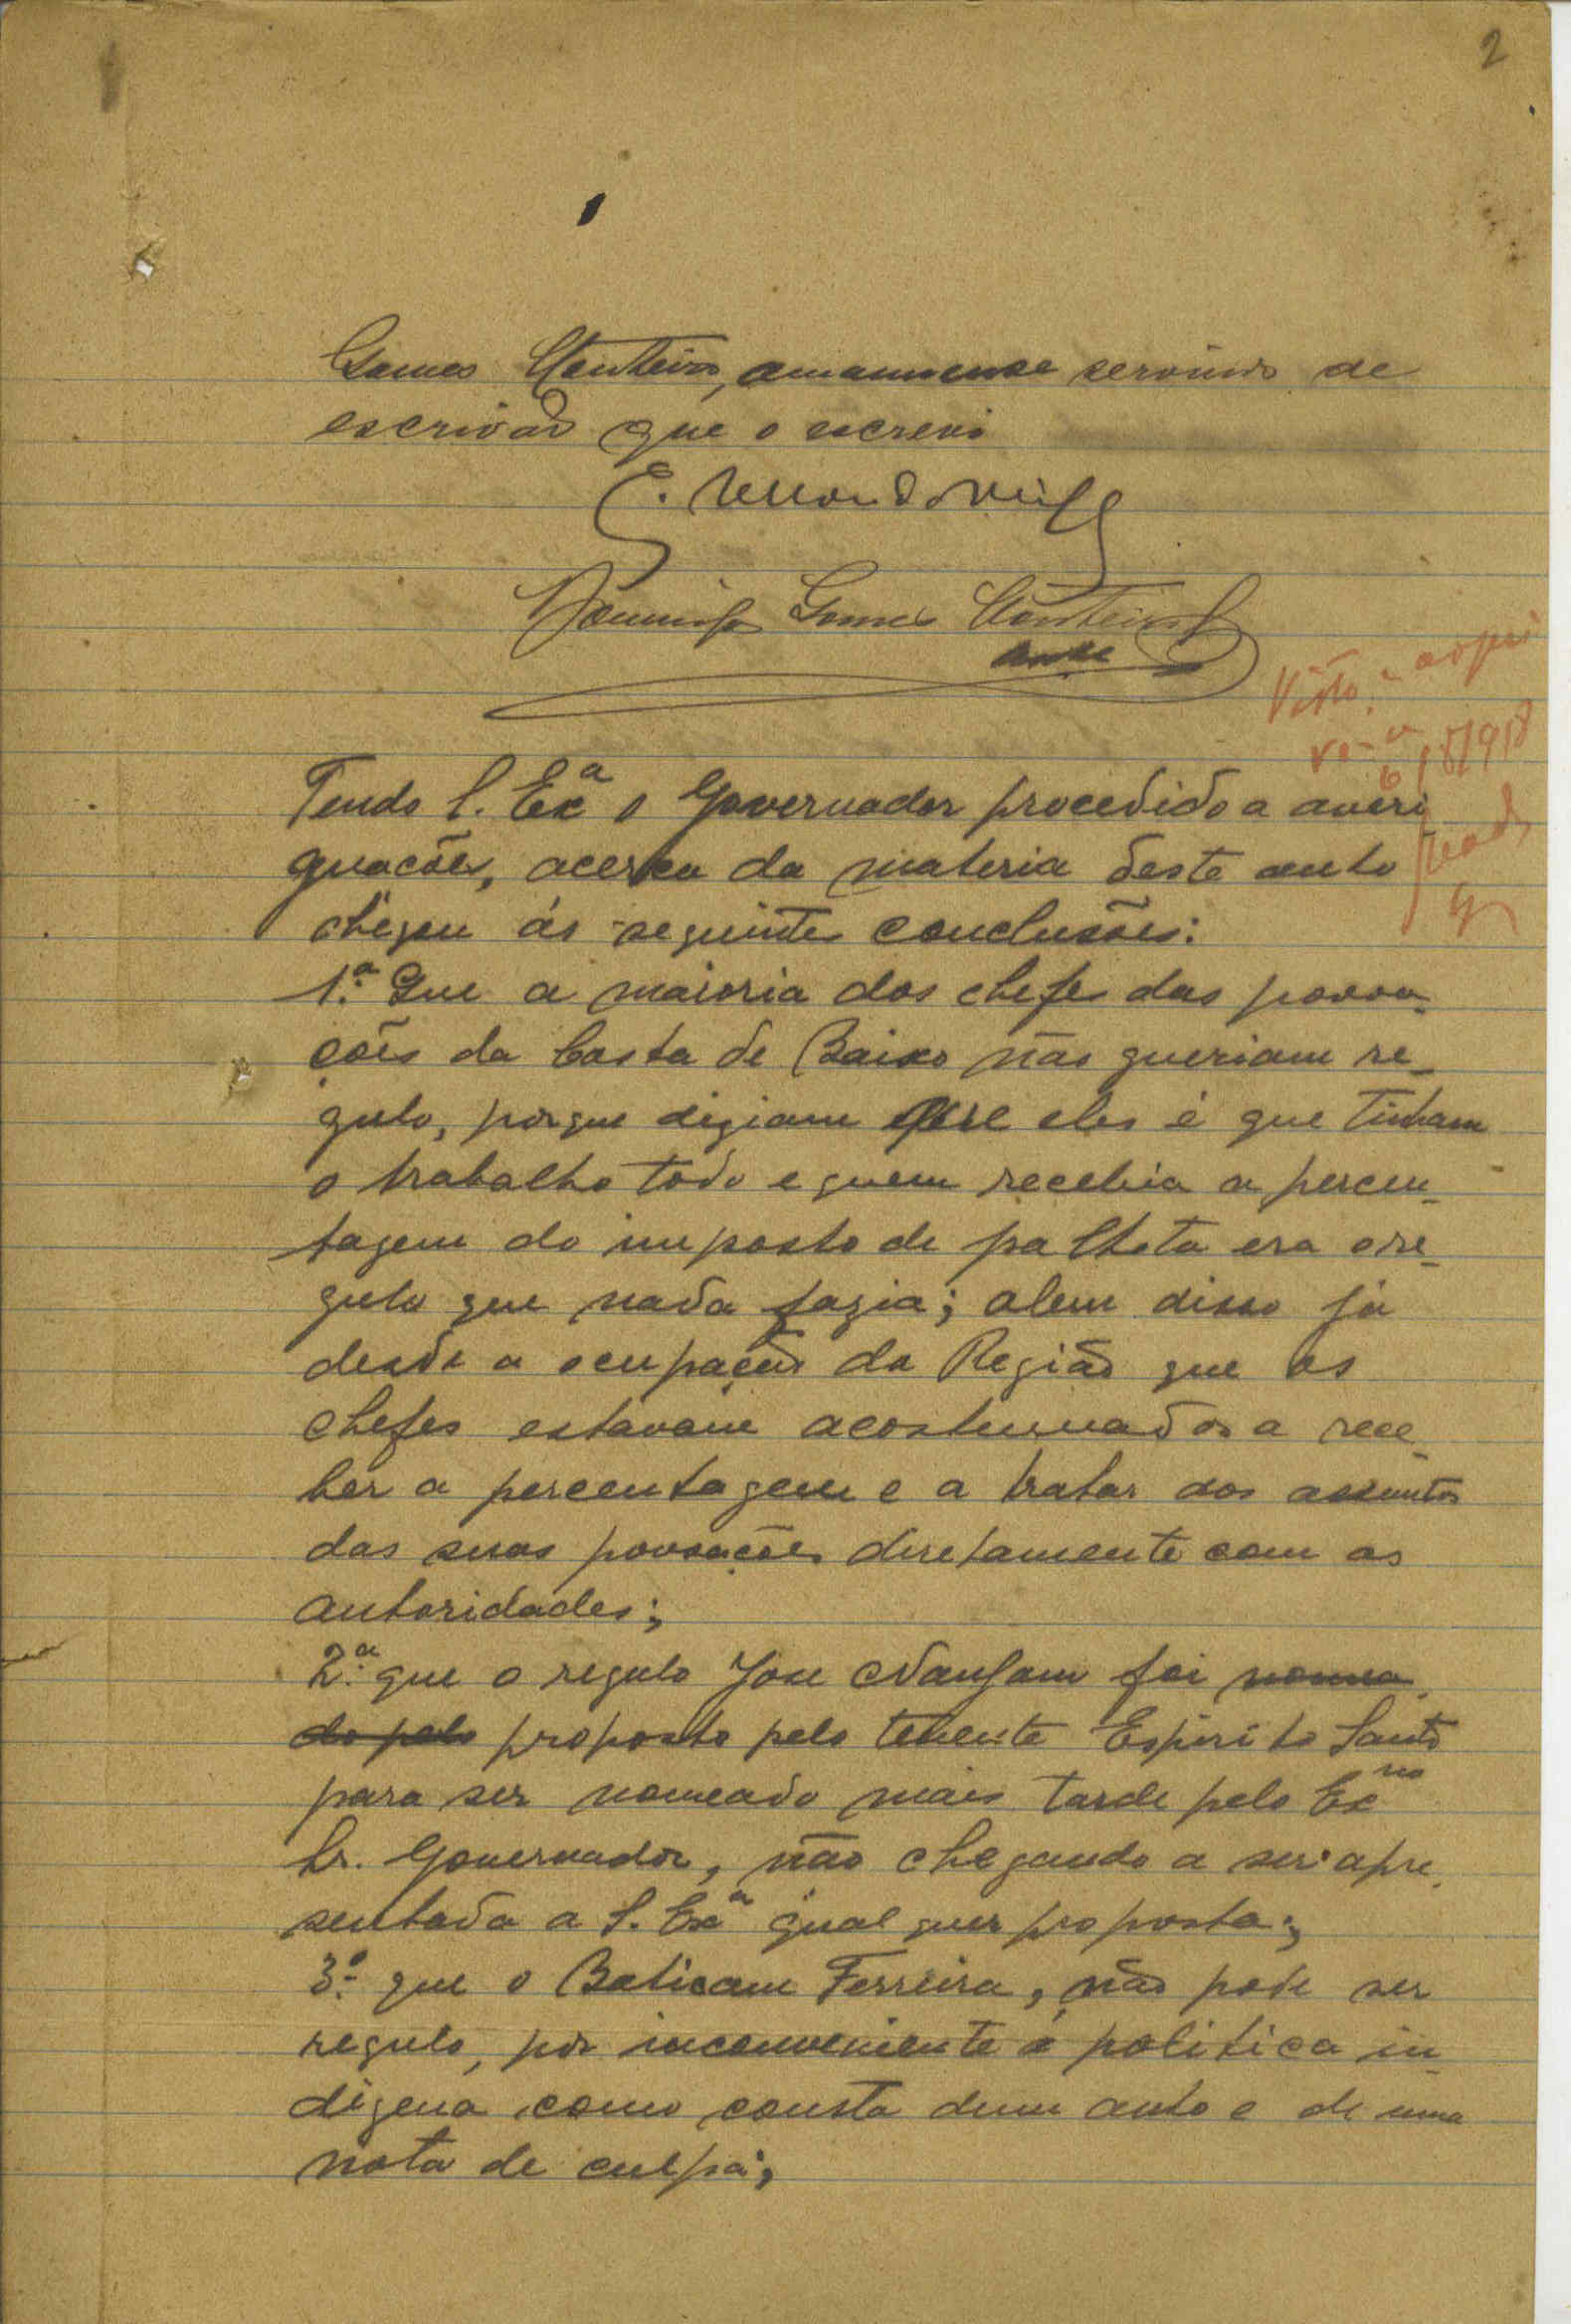 2
Gomes Monteiro, amanuense servindo de
escrivão que o escrevi
Domingos Gomes Monteiro
Visto
6/8/918
Tendo S. Exª o Governador procedido a averi
guacões, acerca da materia deste auto
chegou ás seguintes conclusões:
1.ª Que a maioria dos chefes das povoa-
ções da Costa de Baixo não queriam re-
gulo, porque diziam que eles é que tinham
o trabalho todo e quem recebia a percen-
tagem do imposto de palhota era o re-
gulo que nada fazia; alem disso já
desde a ocupação da Região que os
chefes estavam acostumados a rece-
ber a percentagem e a tratar dos assuntos
das suas povoações diretamente com as
autoridades;
2.ª que o regulo José Nanfam foi nomea
do pelo proposto pelo tenente Espirito Santo
para ser nomeado mais tarde pelo Exmo
Sr. Governador, não chegando a ser apre-
sentada a S. Exª qual quer proposta;
3.º que o Baticam Ferreira, não pode ser
regulo, por inconveniente á politica in-
digena como consta dum auto e de uma
nota de culpa;